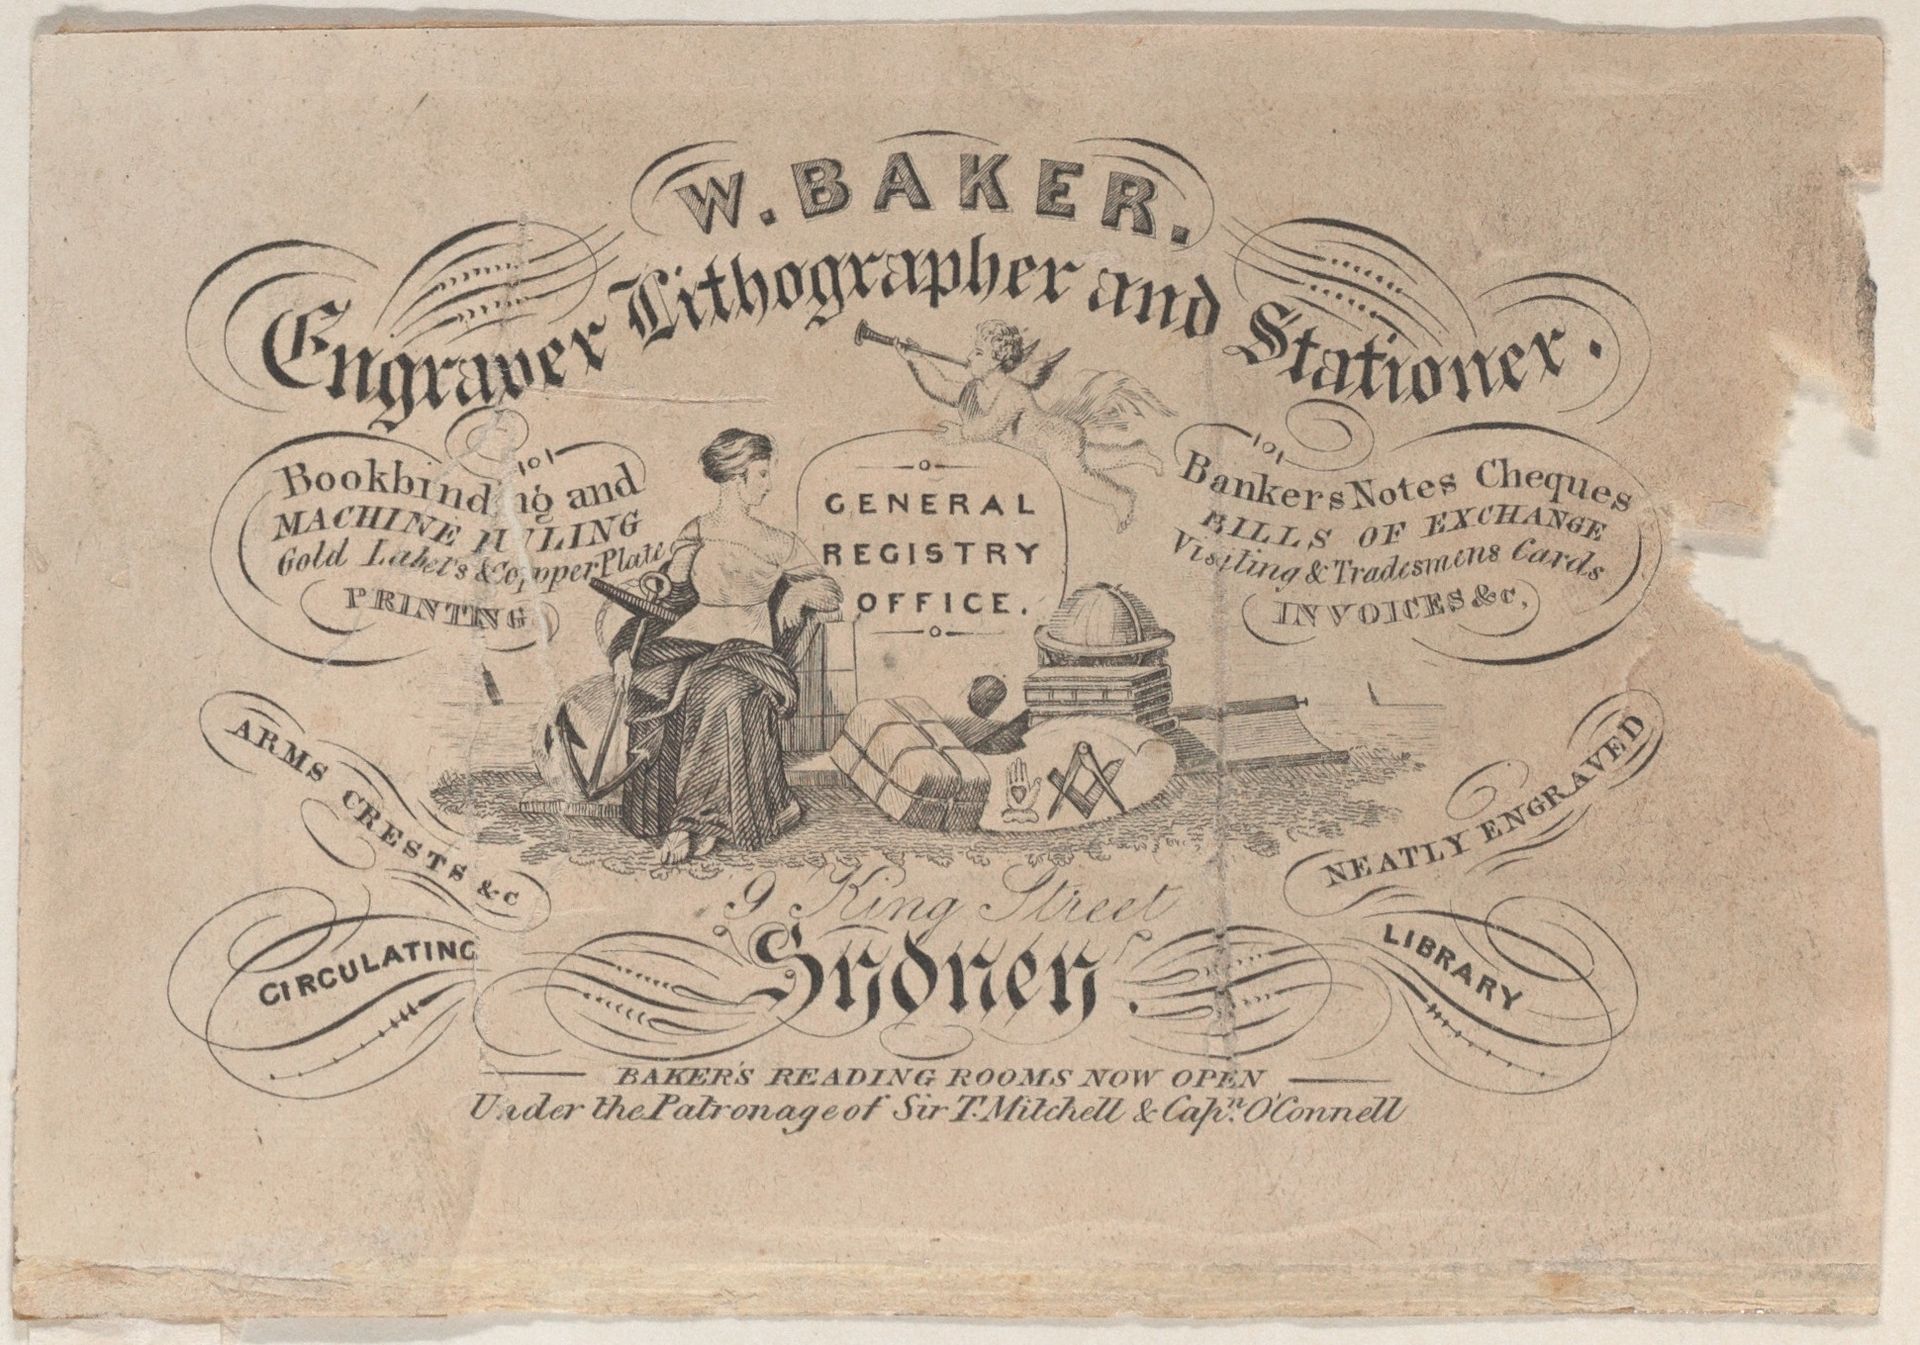 W. BAKER.
Engraver Lithographer and Stationer.
Bookbinding and
MACHINE RULING
Gold Labels & Copper Plate
PRINTING
GENERAL
REGISTRY
OFFICE.
Bankers Notes Cheques
BILLS OF EXCHANGE
Visiting & Tradesmens Cards
INVOICES &c.
ARMS CRESTS &c
NEATLY ENGRAVED
CIRCULATING
LIBRARY
9 King Street
Sydney.
BAKER'S READING ROOMS NOW OPEN
Under the Patronage of Sir T. Mitchell & Capn. O'Connell